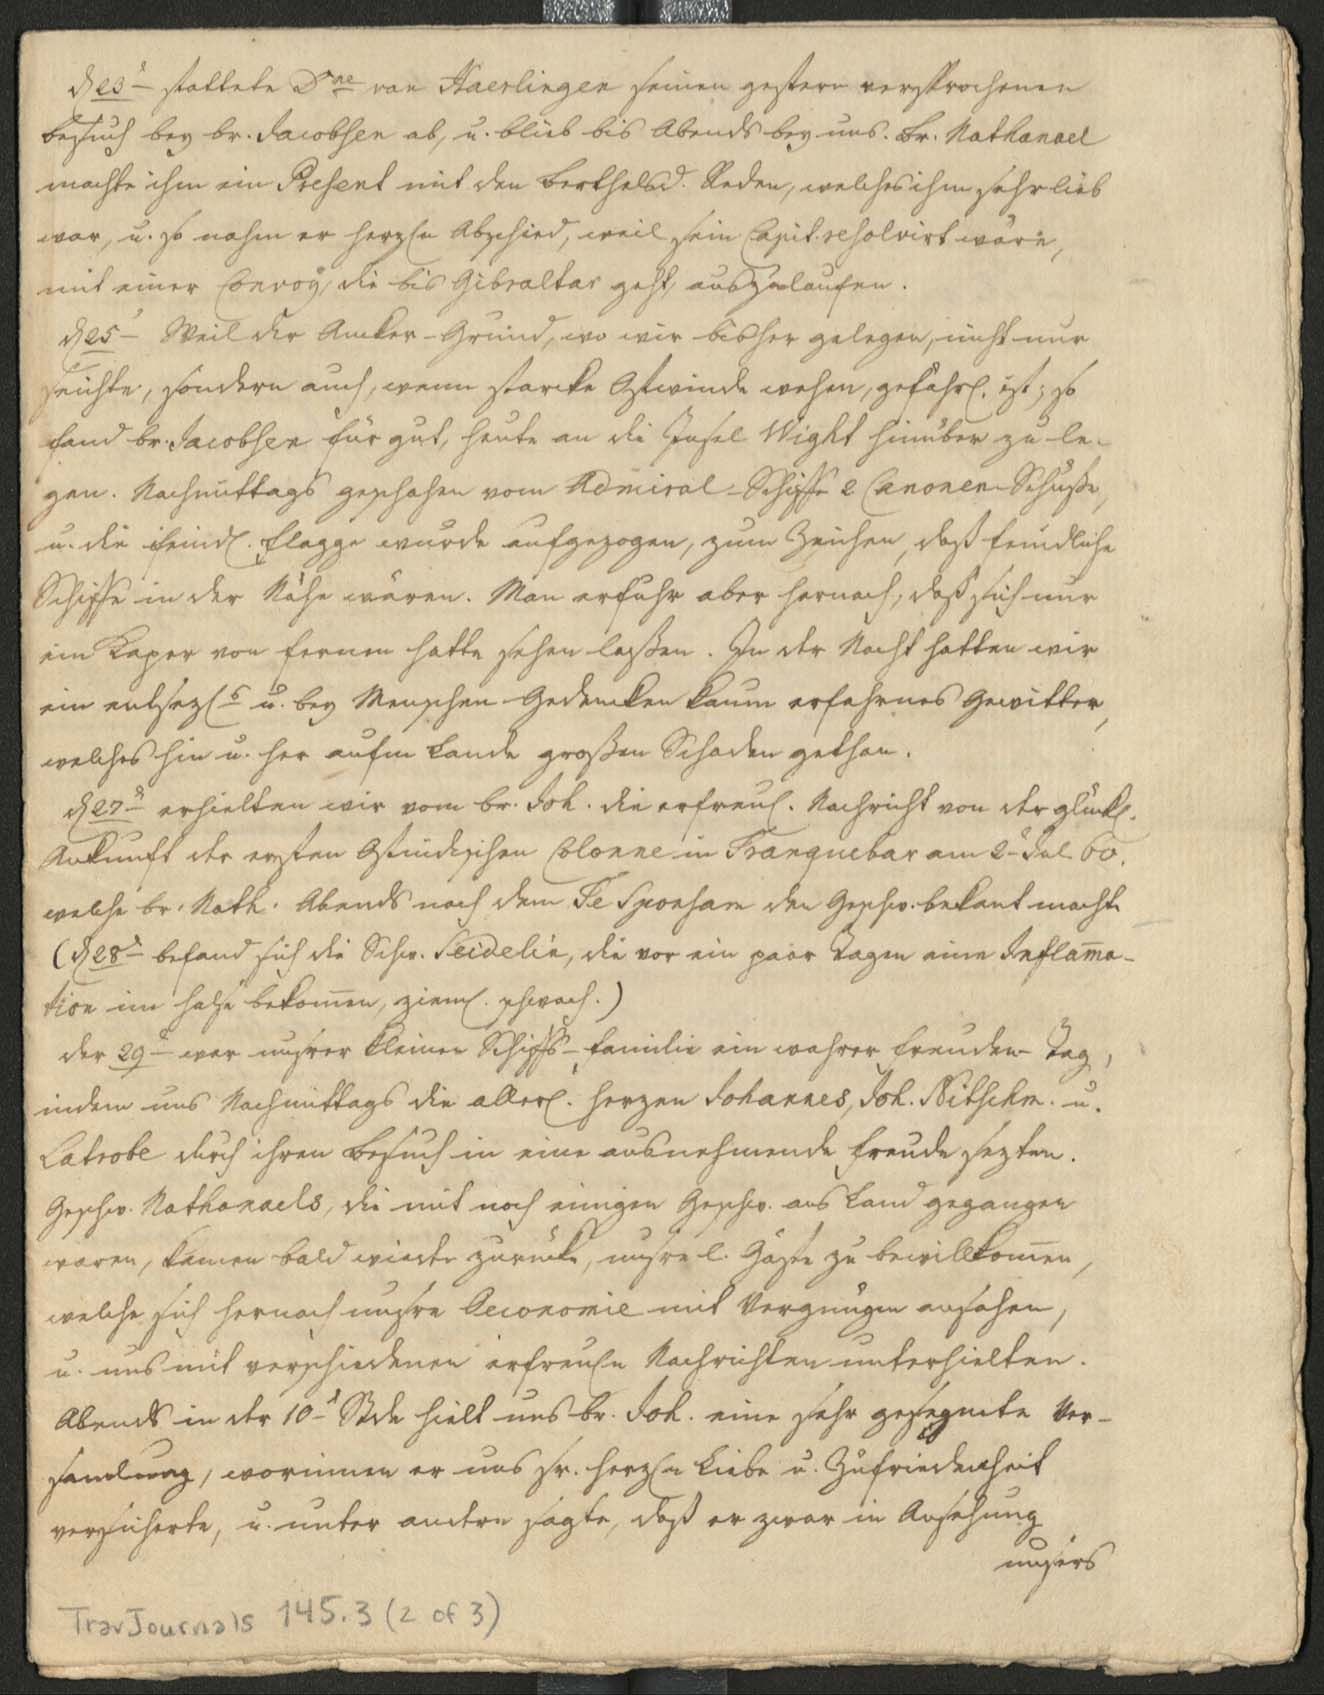 d 23ᵗ stattete Dⁿᵉ van Haerlingen seinen gestern versprochenen
Besuch bey br. Jacobsen ab, u. blieb bis Abends bey uns. Br. Nathanael
machte ihm ein Present mit den Berthelsd. Reden, welches ihm sehr lieb
war, u. so nahm er herzl. Abschied, weil sein Capit. resolvirt wäre,
mit einer Convoy, die bis Gibraltar geht, auszulaufen.
d 25ᵗ Weil der Ancker-Grund, wo wir bisher gelegen, nicht nur
seichte, sondern auch, wenn starcke Ostwinde wehen, gefährl. ist; so
fand br. Jacobsen für gut, heute an die Insel Wight hinüber zu le-
gen. Nachmittags geschahen vom Admiral-Schiffe 2 Canonen-Schüße,
u. die feindl. Flagge wurde aufgezogen, zum Zeichen, daß feindliche
Schiffe in der Nähe wären. Man erfuhr aber hernach, daß sich nur
ein Kaper von fernen hatte sehen laßen. In der Nacht hatten wir
ein entsezl.ˢ u. bey Menschen Gedencken kaum erfahrnes Gewitter,
welches hin u. her aufm Lande großen Schaden gethan.
d 27ᵗ erhielten wir vom br. Joh. die erfreul. Nachricht von der glückl.
Ankunft der ersten Ostindischen Colonne in Tranquebar am 2ᵗ Jul. 60.
welche br. Nath. Abends nach dem Te Sponsam den Geschw. bekant machte
(d 28ᵗ befand sich die Schw. Seidelin, die vor ein paar Tagen eine Inflam̅a-
tion im Halse bekom̅en, zieml. schwach.)
der 29ᵗ war unsrer kleinen Schiffs-Familie ein wahrer Freuden-Tag,
indem uns Nachmittags die allerl. Herzen Johannes, Joh. Nitschm. u.
Latrobe durch ihren Besuch in eine ausnehmende Freude sezten.
Geschw. Nathanaels, die mit noch einigen Geschw. ans Land gegangen
waren, kamen bald wieder zurücke, unsre l. Gäste zu bewillkom̅en,
welche sich hernach unsre Oeconomie mit Vergnügen ansahen,
u. uns mit verschiedenen erfreul.n Nachrichten unterhielten.
Abends in der 10ᵗ Stde hielt uns br. Joh. eine sehr gesegnete Ver-
samlung, worinnen er uns sr. herzl.n Liebe u. Zufriedenheit
versicherte, u. unter andern sagte, daß er zwar in Ansehung
unsers
TravJournals 145.3 (2 of 3)